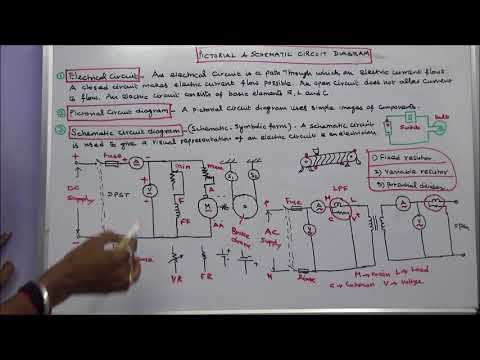 PICTORIAL & SCHEMATIC CIRCUIT DIAGRAM
① Electrical Circuit - An electrical circuit is a path through which an electric current flows
A closed circuit makes electric current flow possible. An open circuit does not allow current
to flow. An electric circuit consists of basic elements R, L and C.
② Pictorial Circuit diagram - A pictorial circuit diagram uses simple images of components.
③ Schematic Circuit diagram - (Schematic - Symbolic form) - A schematic circuit
is used to give a visual representation of an electric circuit to an electrician
Switch
bulb
1) Fixed resistor
2) Variable resistor
3) Potential divider
+
DC
Supply
-
Fuse
A
DPST
V
min
F
FF
max
A
M
AA
S1
S2
Brake drum
VR
FR
P
AC
Supply
N
Fuse
A
LPF
M
L
C
V
V
A
V
open
M → Main L → Load
C → Common V → Voltage